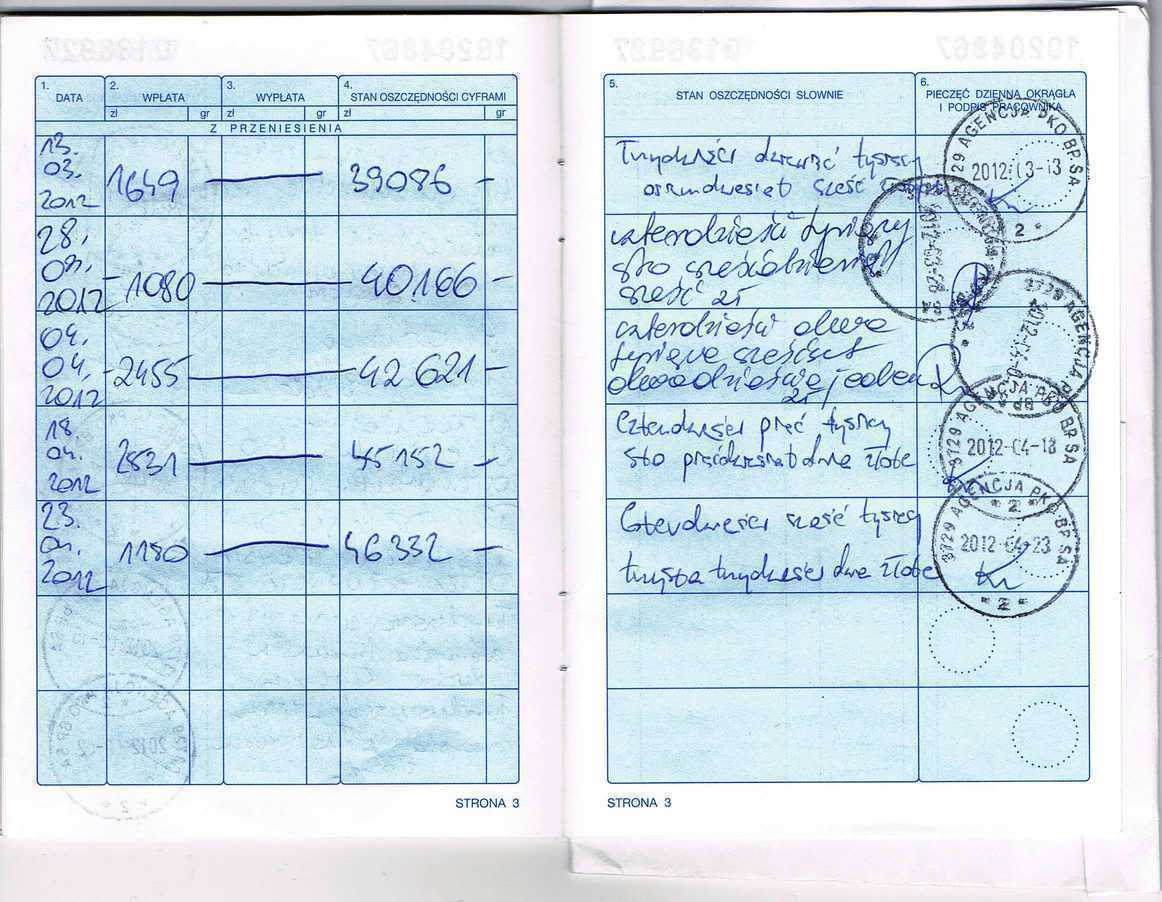 0136927 10204867 0136927 10204867
1. DATA
2. WPŁATA
zł gr
3. WYPŁATA
zł gr
4. STAN OSZCZĘDNOŚCI CYFRAMI
zł gr
Z PRZENIESIENIA
13.
03.
2012
1649 — 39086 -
28.
03.
2012
-1080 — 40166 -
04.
04.
2012
-2455 — 42621 -
18.
04.
2012
2531 — 45152 -
23.
04.
2012
1180 — 46332 -
STRONA 3
5. STAN OSZCZĘDNOŚCI SŁOWNIE
6. PIECZĘĆ DZIENNA OKRĄGŁA
I PODPIS PRACOWNIKA
Trzydzieści dziewięć tysięcy
osiemdziesiąt sześć złotych
czterdzieści tysięcy
sto sześćdziesiąt
sześć zł
czterdzieści dwa
tysiące sześćset
dwadzieścia jeden
zł
Czterdzieści pięć tysięcy
sto pięćdziesiąt dwa złote
Czterdzieści sześć tysięcy
trzysta trzydzieści dwa złote
3729 AGENCJA PKO BP SA
2012-03-13
2
2012-03-28
3729 AGENCJA PKO BP SA
2012-04-0
3729 AGENCJA PKO BP SA
2012-04-18
2
3729 AGENCJA PKO BP SA
2012-04-23
2
STRONA 3